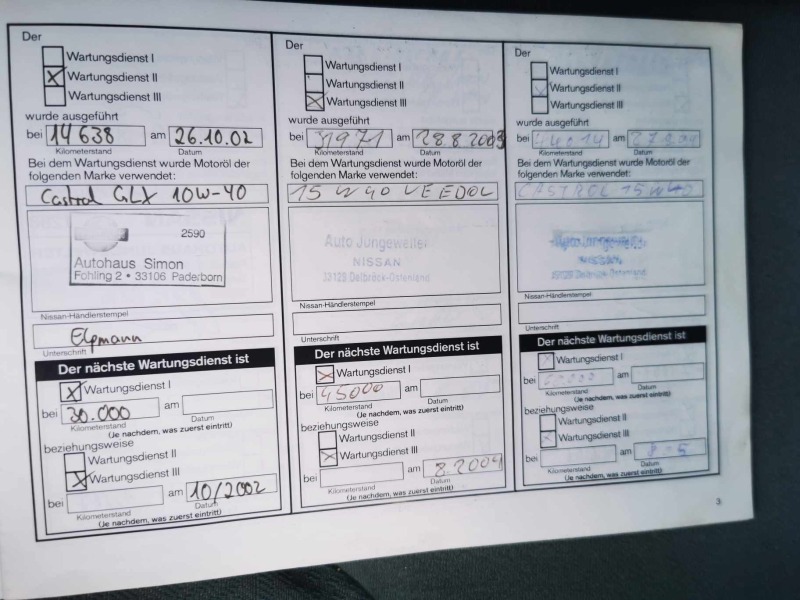 Der
Wartungsdienst I
Wartungsdienst II
Wartungsdienst III
wurde ausgeführt
bei 14 638 am 26.10.02
Kilometerstand Datum
Bei dem Wartungsdienst wurde Motoröl der
folgenden Marke verwendet:
Castrol GLX 10W-40
2590
Autohaus Simon
Fohling 2 • 33106 Paderborn
Nissan-Händlerstempel
Unterschrift
Der nächste Wartungsdienst ist
Wartungsdienst I
bei 30.000 am
Kilometerstand Datum
(Je nachdem, was zuerst eintritt)
beziehungsweise
Wartungsdienst II
Wartungsdienst III
bei am 10/2002
Kilometerstand Datum
(Je nachdem, was zuerst eintritt)
Der
Wartungsdienst I
Wartungsdienst II
Wartungsdienst III
wurde ausgeführt
bei 31971 am 28.8.2003
Kilometerstand Datum
Bei dem Wartungsdienst wurde Motoröl der
folgenden Marke verwendet:
15 W 40 VEEDOL
Auto Jungeweller
NISSAN
33129 Delbrück-Ostenland
Nissan-Händlerstempel
Unterschrift
Der nächste Wartungsdienst ist
Wartungsdienst I
bei 45000 am
Kilometerstand Datum
(Je nachdem, was zuerst eintritt)
beziehungsweise
Wartungsdienst II
Wartungsdienst III
bei am 8.2004
Kilometerstand Datum
(Je nachdem, was zuerst eintritt)
Der
Wartungsdienst I
Wartungsdienst II
Wartungsdienst III
wurde ausgeführt
bei am
Kilometerstand Datum
Bei dem Wartungsdienst wurde Motoröl der
folgenden Marke verwendet:
CASTROL 15W40
NISSAN
33129 Delbrück-Ostenland
Nissan-Händlerstempel
Unterschrift
Der nächste Wartungsdienst ist
Wartungsdienst I
bei am
Kilometerstand Datum
(Je nachdem, was zuerst eintritt)
beziehungsweise
Wartungsdienst II
Wartungsdienst III
bei am
Kilometerstand Datum
(Je nachdem, was zuerst eintritt)
3